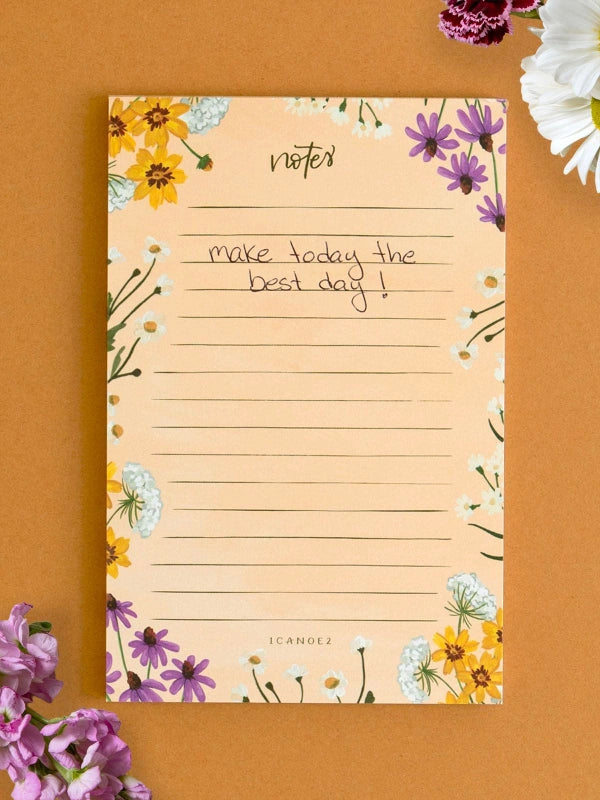 notes
make today the
best day!
1CANOE2